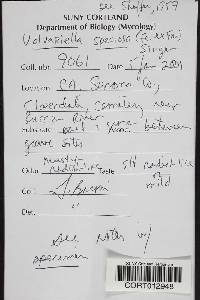 see Shaffer, 1957
SUNY CORTLAND
Department of Biology (Mycology)
Volvariella speciosa (Fr. ex Fr.)
Singer
Coll. nbr. 9061 Date 5 Jan 2001
Location CA, Sonoma Co,
Cloverdale, Cemetery near
Russian River
Substrate soil between
grave sites
Odor Taste sl radish like
or mild
Col.
Det. "
see notes w/
specimen
SUNY Cortland
CORT012948